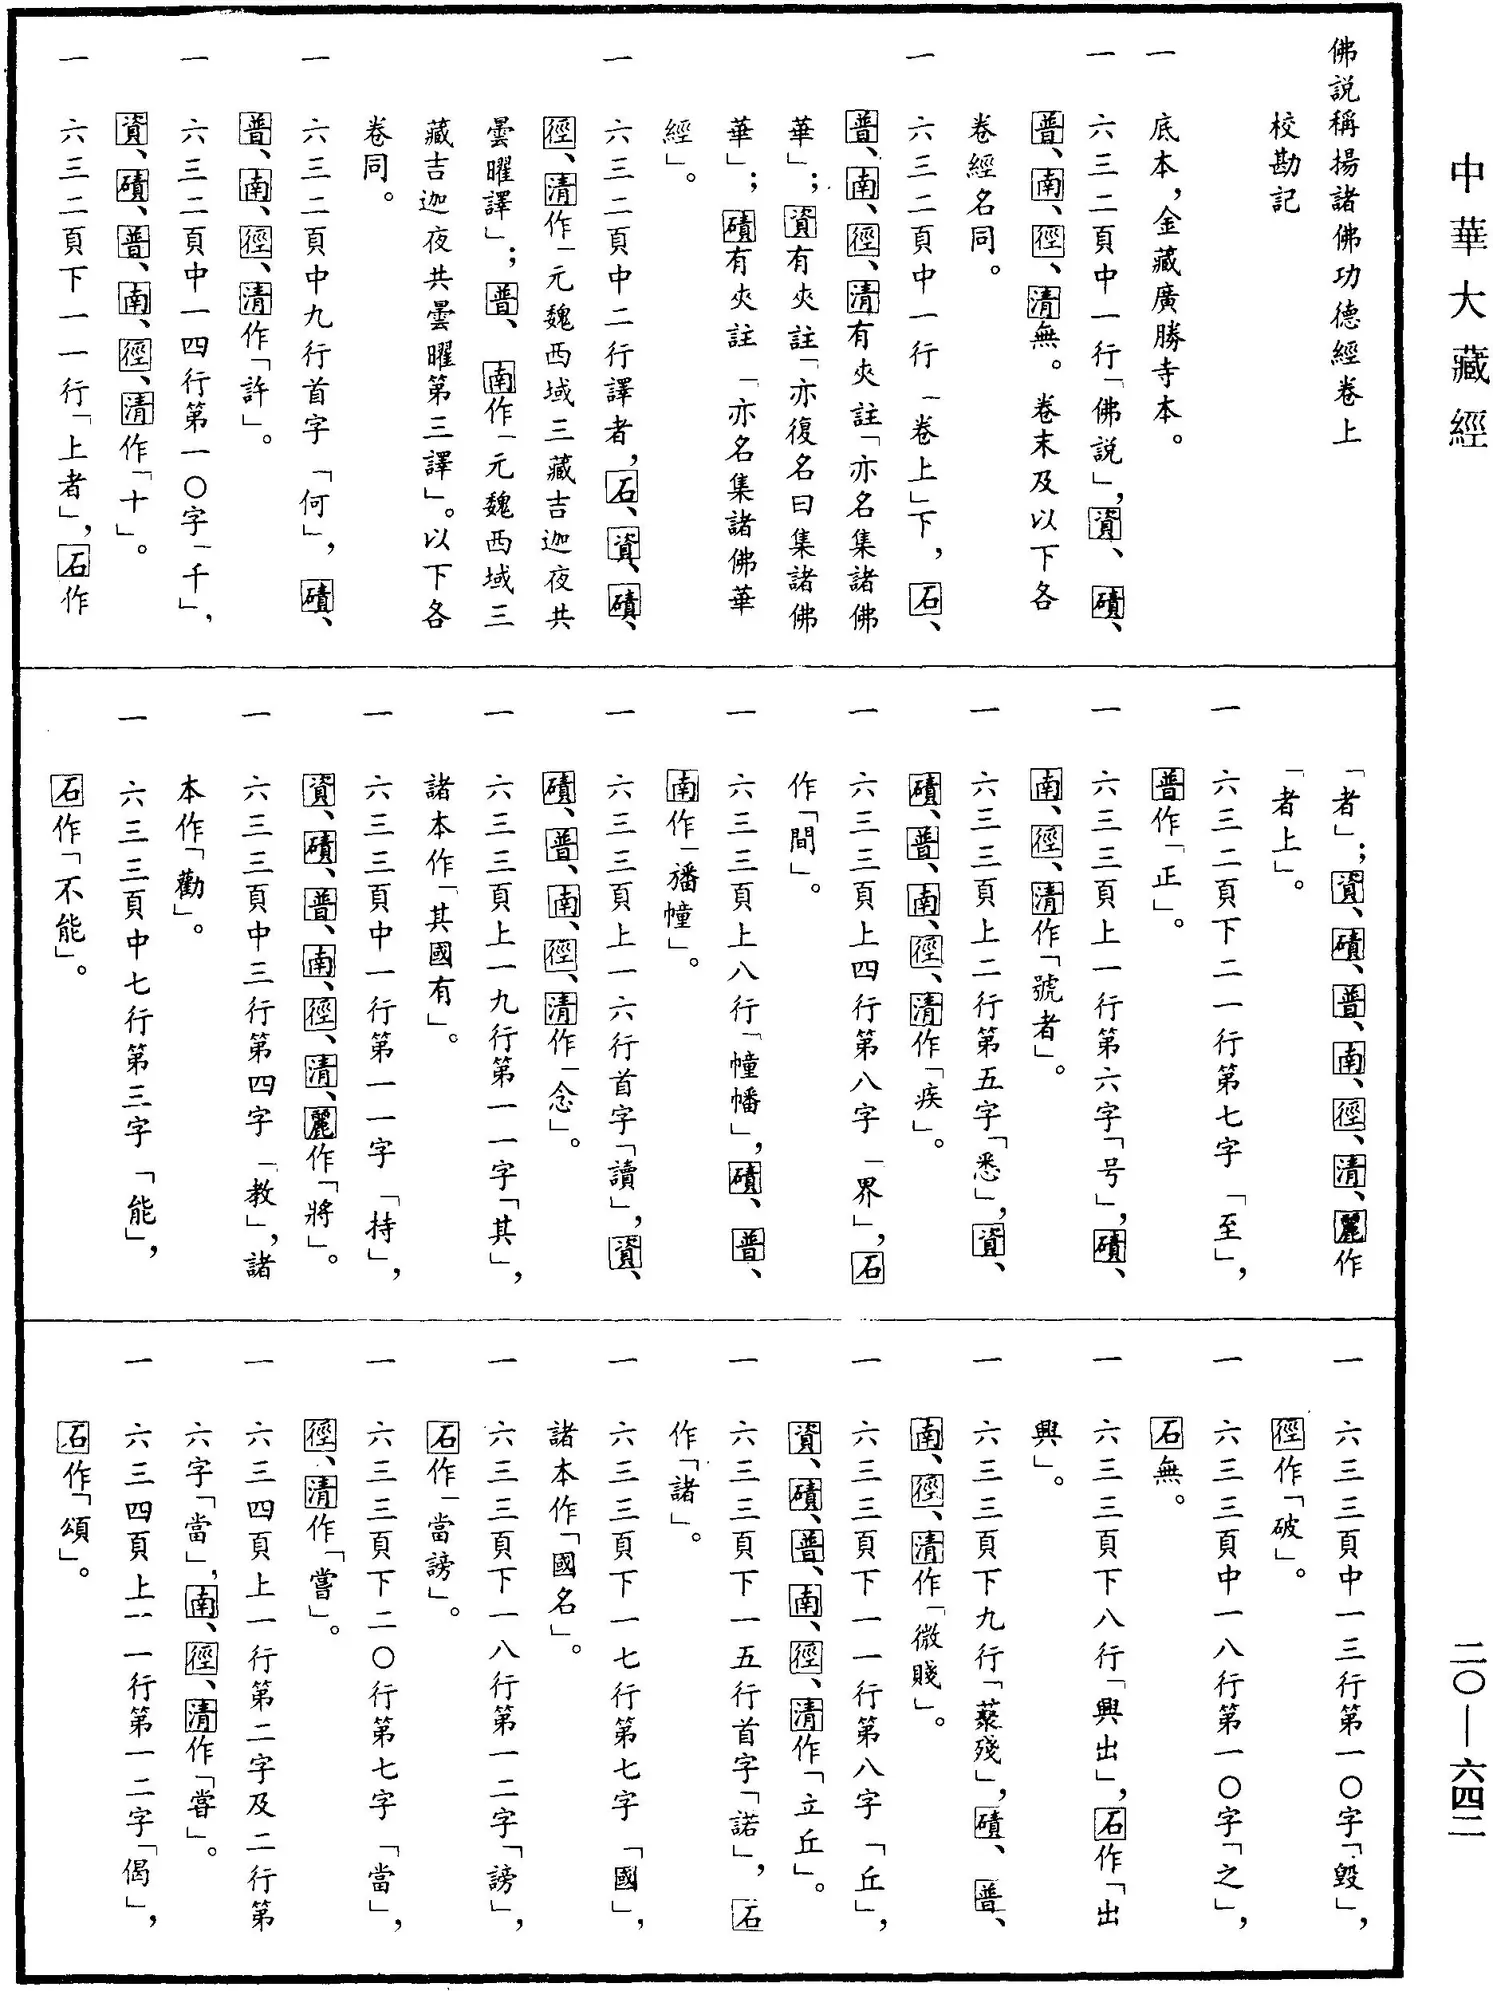 中華大藏經
佛説稱揚諸佛功德經卷上
校勘記
一　底本，金藏廣勝寺本。
一　六三二頁中一行「佛説」，資、磧、
普、南、徑、清無。卷末及以下各
卷經名同。
一　六三二頁中一行「卷上」下，石、
普、南、徑、清有夾註「亦名集諸佛
華」；資有夾註「亦復名曰集諸佛
華」；磧有夾註「亦名集諸佛華
經」。
一　六三二頁中二行譯者，石、資、磧、
徑、清作「元魏西域三藏吉迦夜共
曇曜譯」；普、南作「元魏西域三
藏吉迦夜共曇曜第三譯」。以下各
卷同。
一　六三二頁中九行首字「何」，磧、
普、南、徑、清作「許」。
一　六三二頁中一四行第一〇字「千」，
資、磧、普、南、徑、清作「十」。
一　六三二頁下一一行「上者」，石作
「者」；資、磧、普、南、徑、清、麗作
「者上」。
一　六三二頁下二一行第七字「至」，
普作「正」。
一　六三三頁上一行第六字「号」，磧、
南、徑、清作「號者」。
一　六三三頁上二行第五字「悉」，資、
磧、普、南、徑、清作「疾」。
一　六三三頁上四行第八字「界」，石
作「間」。
一　六三三頁上八行「幢幡」，磧、普、
南作「旛幢」。
一　六三三頁上一六行首字「讀」，資、
磧、普、南、徑、清作「念」。
一　六三三頁上一九行第一一字「其」，
諸本作「其國有」。
一　六三三頁中一行第一一字「持」，
資、磧、普、南、徑、清、麗作「將」。
一　六三三頁中三行第四字「教」，諸
本作「勸」。
一　六三三頁中七行第三字「能」，
石作「不能」。
一　六三三頁中一三行第一〇字「毀」，
徑作「破」。
一　六三三頁中一八行第一〇字「之」，
石無。
一　六三三頁下八行「興出」，石作「出
興」。
一　六三三頁下九行「蔑殘」，磧、普、
南、徑、清作「微賤」。
一　六三三頁下一一行第八字「丘」，
資、磧、普、南、徑、清作「立丘」。
一　六三三頁下一五行首字「諾」，石
作「諸」。
一　六三三頁下一七行第七字「國」，
諸本作「國名」。
一　六三三頁下一八行第一二字「謗」，
石作「當謗」。
一　六三三頁下二〇行第七字「當」，
徑、清作「嘗」。
一　六三四頁上一行第二字及二行第
六字「當」，南、徑、清作「甞」。
一　六三四頁上一一行第一二字「偈」，
石作「頌」。
二〇—六四二